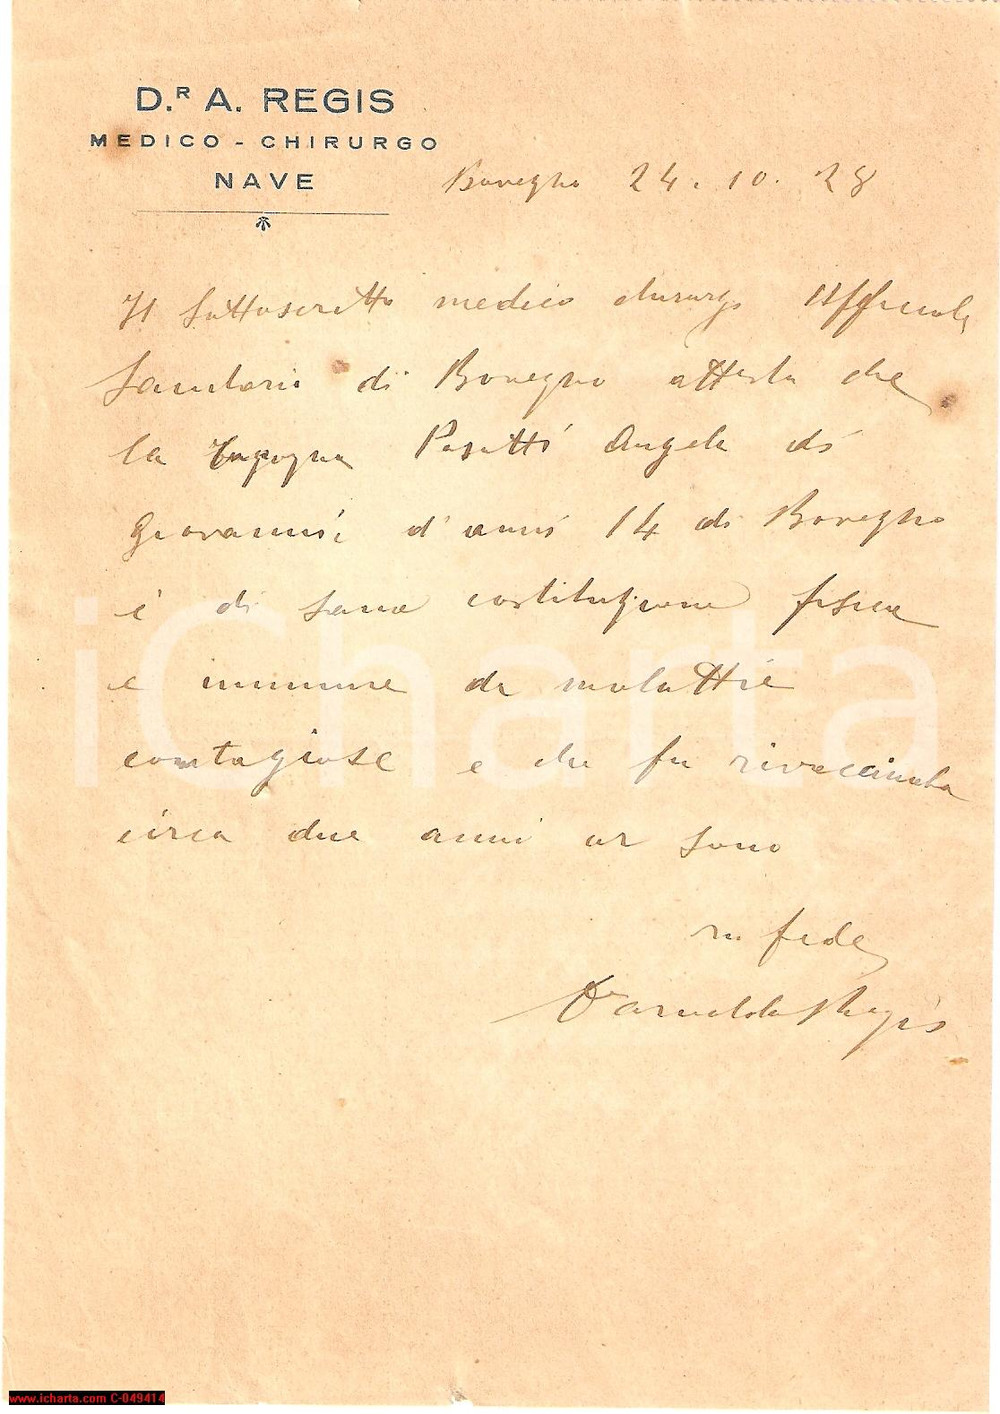 D.R A. REGIS
MEDICO - CHIRURGO
NAVE
Bovegno 24. 10. 28
Il sottoscritto medico chirurgo Ufficiale
Sanitario di Bovegno attesta che
la Angela di
Giovanni, d'anni 14 di Bovegno
è di sana costituzione fisica
e immune da malattie
contagiose e che fu rivaccinata
circa due anni or sono
in fede
Dr Arnaldo Regis
iCharta
www.icharta.com C-049414